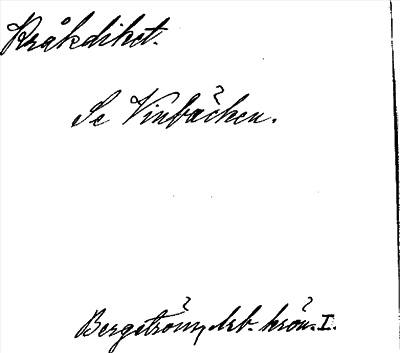 Kråkdiket.
Se Vinbäcken.
Bergström, Arb. krön. I.